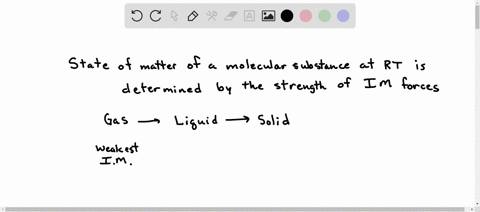 State of matter of a molecular substance at RT is
determined by the strength of IM forces
Gas → Liquid → Solid
weakest
I.M.